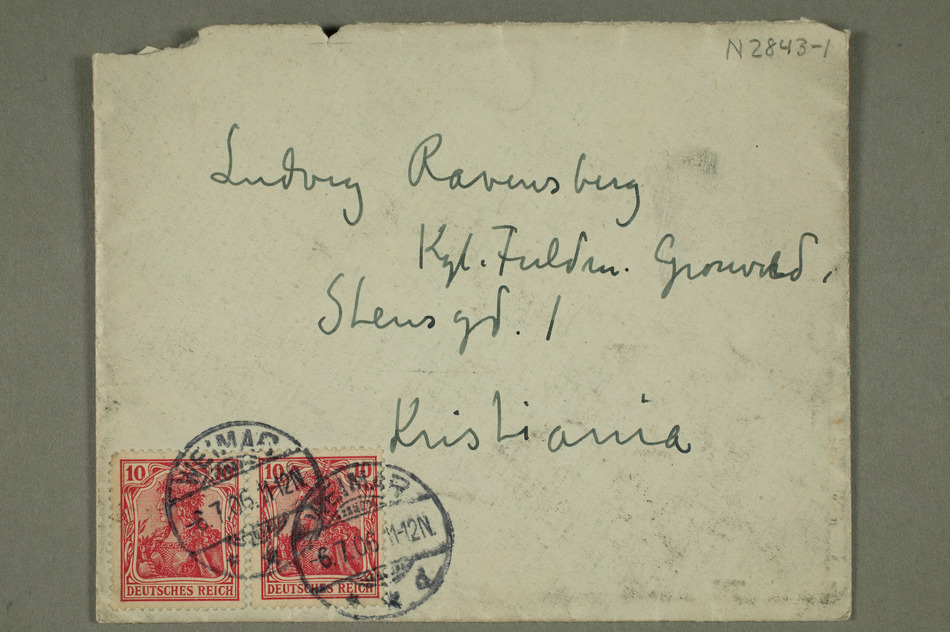 N 2843-1
Ludvig Ravensberg
Kgl. Fuldm. Gronvold,
Stensgd. 1
Kristiania
WEIMAR
-6.7.06. 11-12N.
WEIMAR
-6.7.06. 11-12N.
d
10
10 10
DEUTSCHES REICH
DEUTSCHES REICH